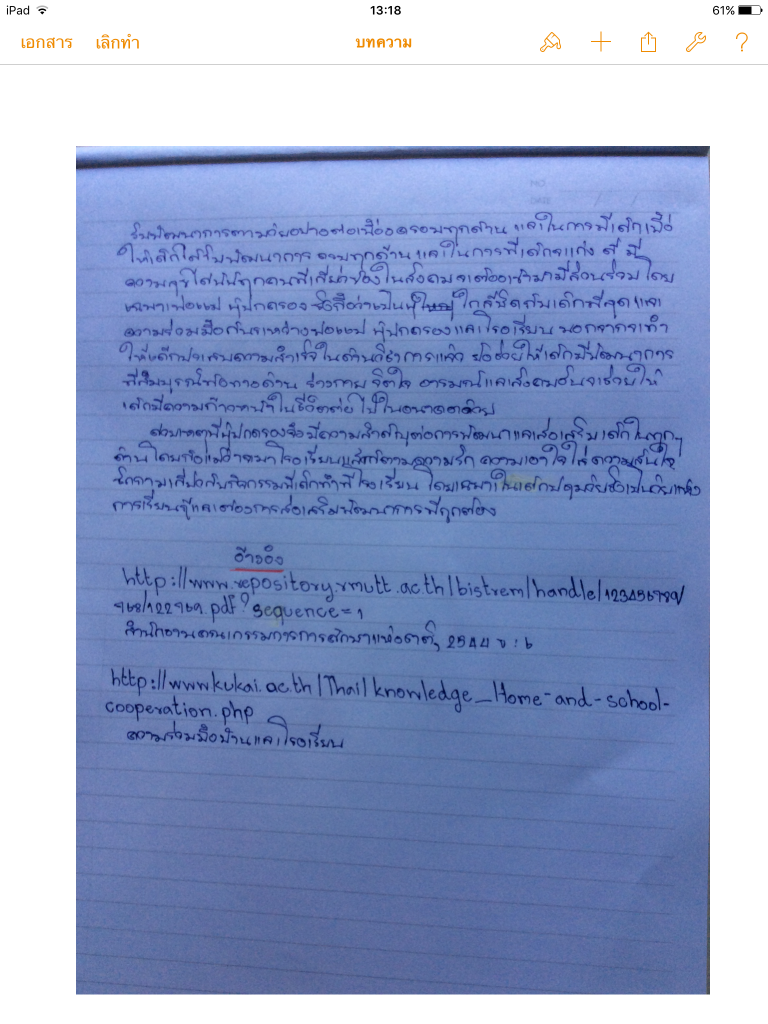 iPad 13:18 61%
เอกสาร เลิกทำ บทความ
รับพัฒนาการตามวัยอย่างต่อเนื่องครอบทุกด้าน และในการที่เด็ก
ให้เด็กได้รับพัฒนาการ ครบทุกด้าน และในการที่เด็กจะเก่ง ดี มี
ความสุขได้นั้นทุกคนที่เกี่ยวข้องในสังคมจะต้องเข้ามามีส่วนร่วม โดย
เฉพาะพ่อแม่ ผู้ปกครอง ซึ่งถือว่าเป็นผู้ใหญ่ ใกล้ชิดกับเด็กที่สุด และ
ความร่วมมือกันระหว่างพ่อแม่ ผู้ปกครองและโรงเรียน นอกจากจะทำ
ให้เด็กประสบความสำเร็จในด้านวิชาการแล้ว ยังช่วยให้เด็กมีพัฒนาการ
ที่สมบูรณ์ทางด้าน ร่างกาย จิตใจ อารมณ์และสังคมอันจะช่วยให้
เด็กมีความก้าวหน้าในชีวิตต่อไปในอนาคตด้วย
สาเหตุที่ผู้ปกครองจึงมีความสำคัญต่อการพัฒนาและส่งเสริมเด็กในทุกๆ
ด้าน โดยพ่อแม่ โรงเรียน ความรัก ความเอาใจใส่ ความสนใจ
ซักถามเกี่ยวกับกิจกรรมที่เด็กทำที่โรงเรียน โดยเฉพาะในเด็กปฐมวัยซึ่งเป็นวัยแห่ง
การเรียนรู้และต้องการส่งเสริมพัฒนาการที่ถูกต้อง
อ้างอิง
http://www.repository.rmutt.ac.th/bistrem/handle/123456789/
968/122969.pdf?sequence=1
สำนักงานคณะกรรมการการศึกษาแห่งชาติ, 2544 ข : ๖
http://www.kukai.ac.th/Thai/knowledge_Home-and-school-
cooperation.php
ความร่วมมือบ้านและโรงเรียน